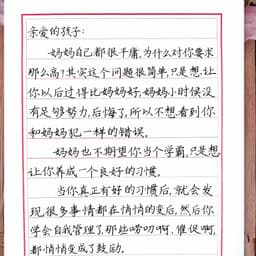 亲爱的孩子:
妈妈自己都很平庸,为什么对你要求
那么高?其实这个问题很简单,只是想让
你以后过得比妈妈好,妈妈小时候没
有足够努力,后悔了,所以不想看到你
和妈妈犯一样的错误。
妈妈也不期望你当个学霸,只是想
让你养成一个良好的习惯。
当你真正有好的习惯后,就会发
现,很多事情都在悄悄的变后,然后你
学会自我管理了,那些唠叨啊,催促啊,
都悄悄变成了鼓励。